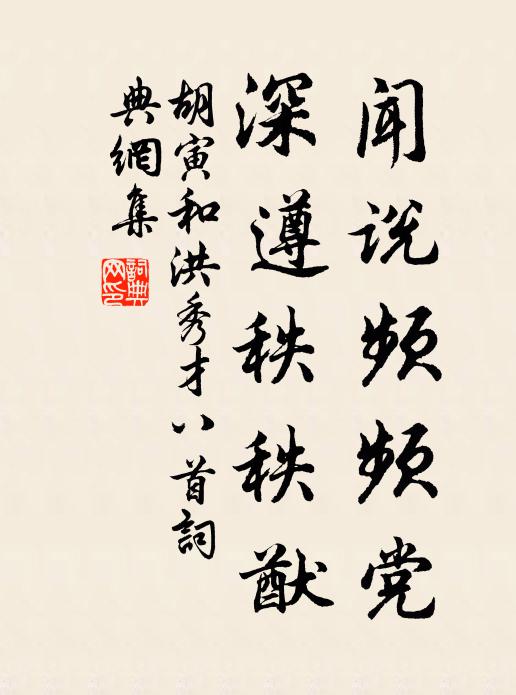 闻说频频党
深遵秩秩猷
胡寅和洪秀才八首詞
典網集
詞典网印